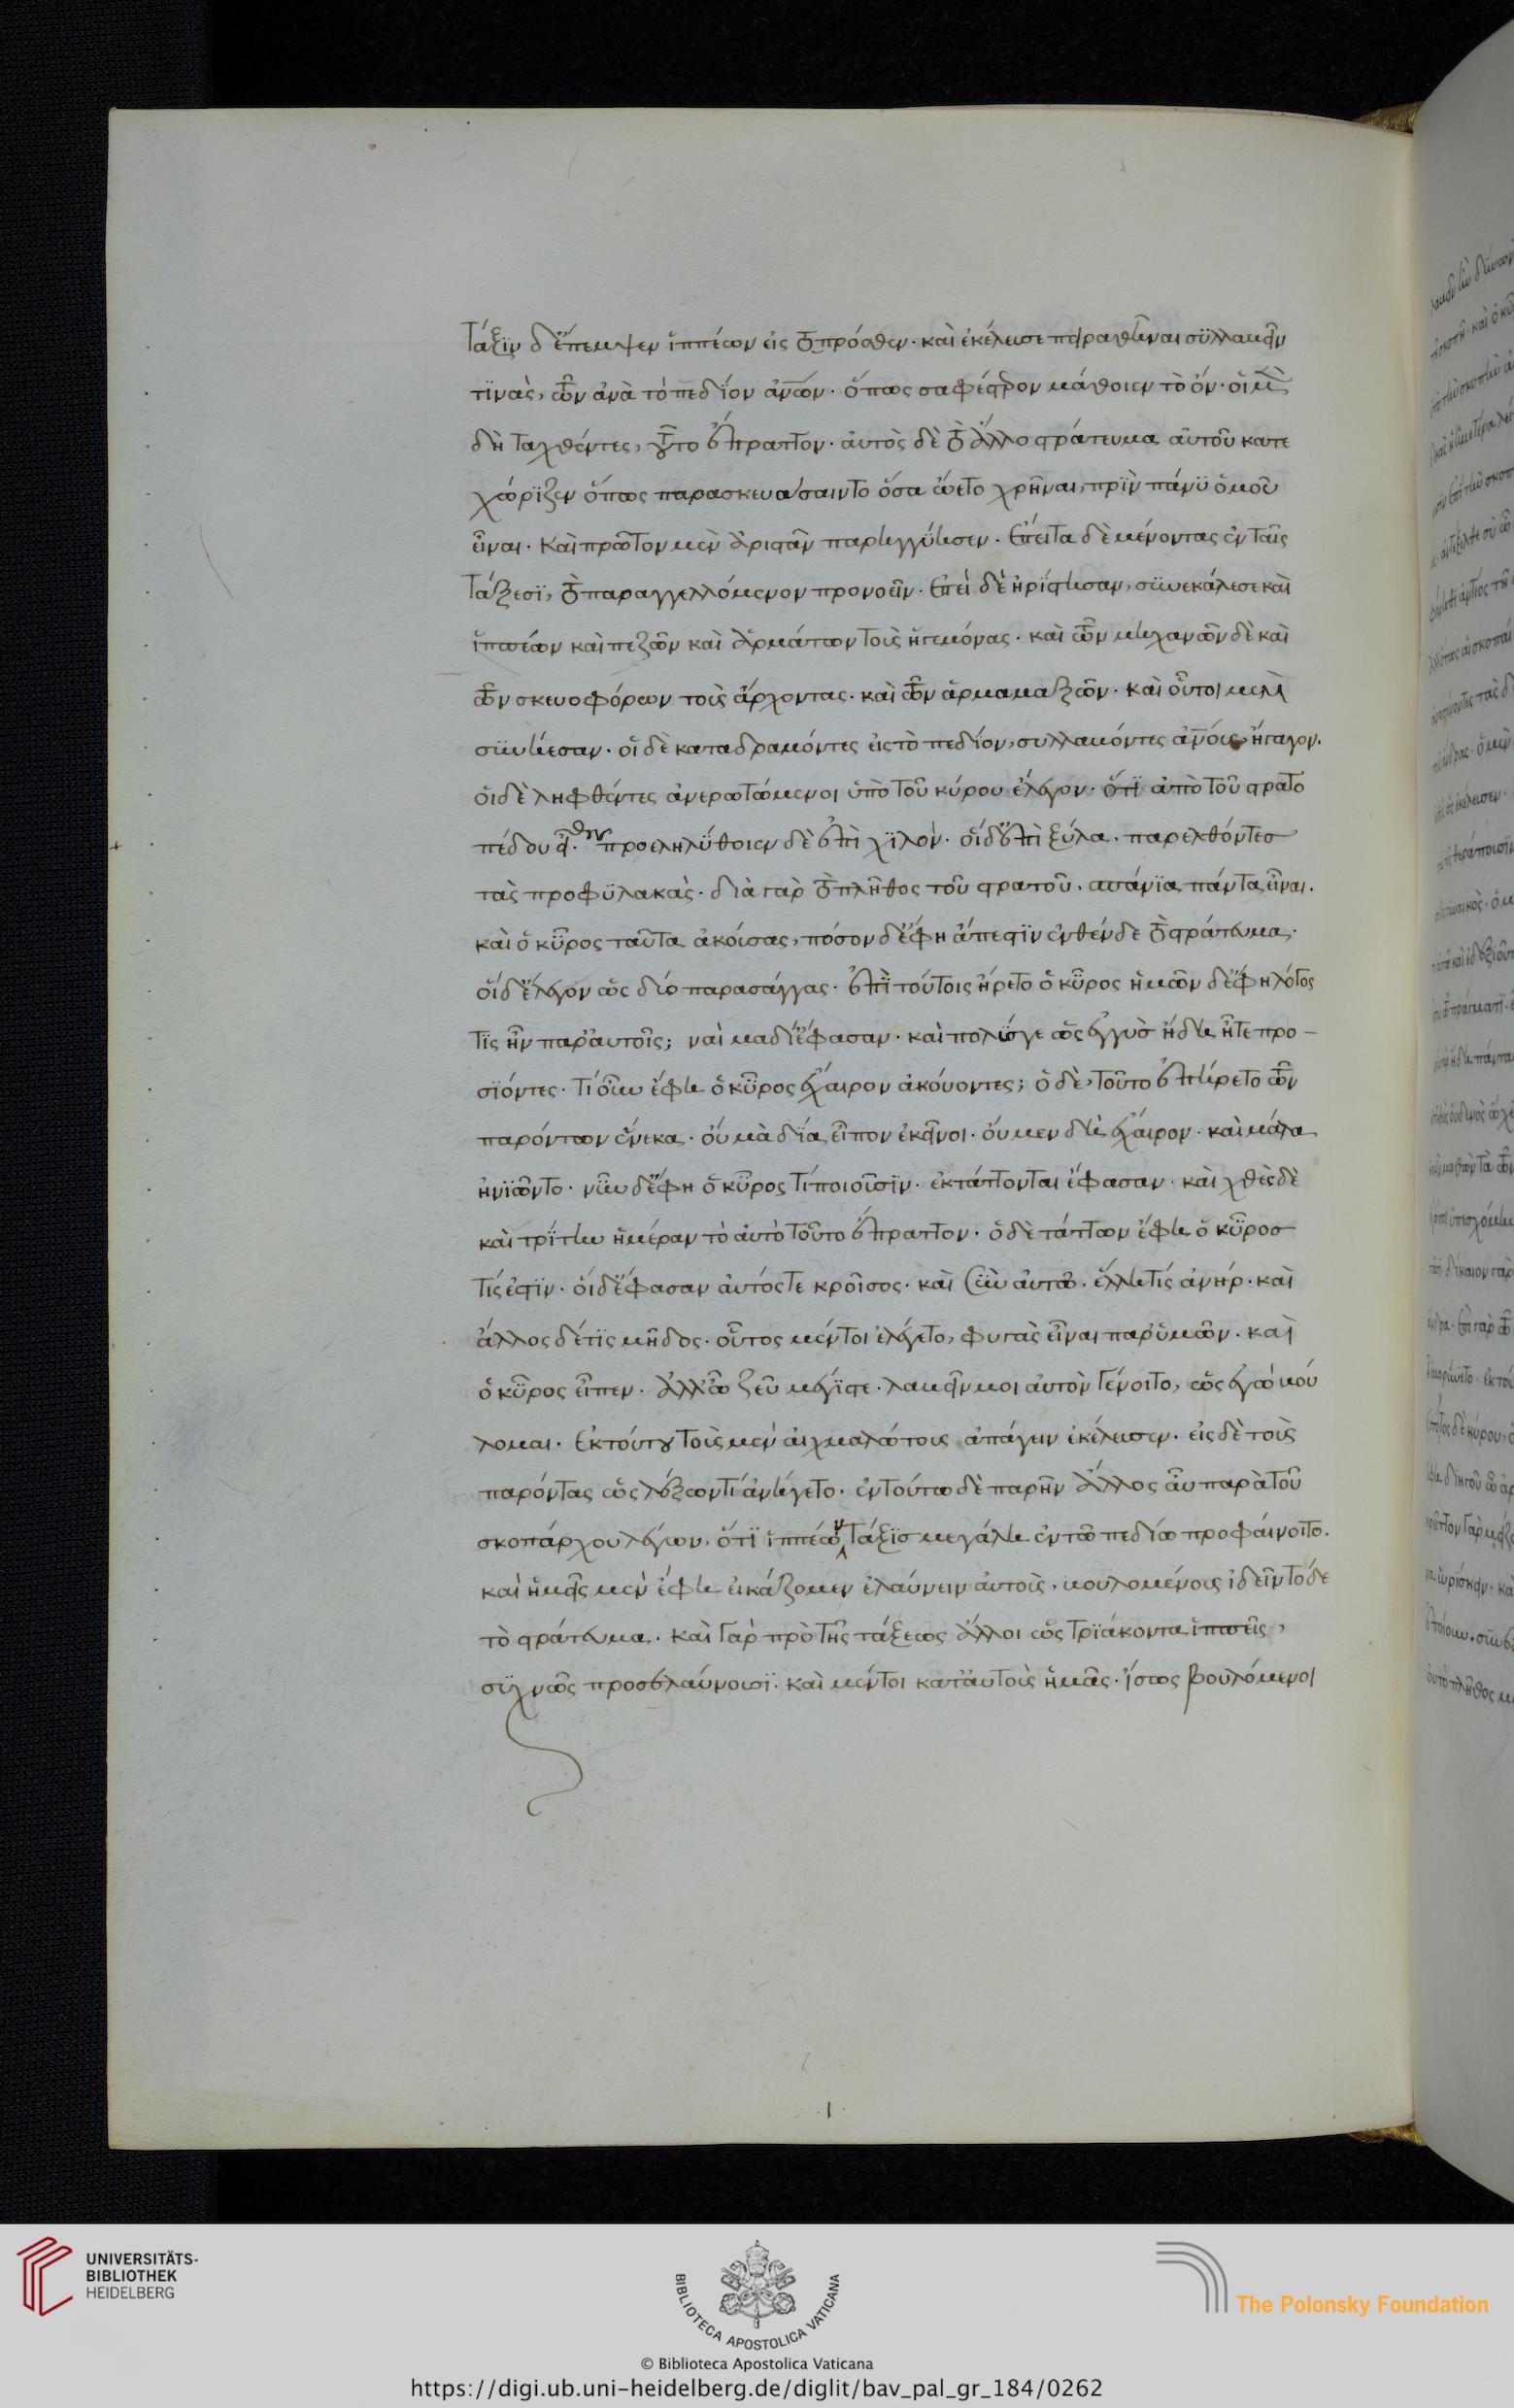 τάξϊν δ' ἔπεμψεν ἱππέων εἰς τὸ πρόσθεν· καὶ ἐκέλευσε πειραθῆναι συλλαβεῖν
τϊνὰς, τῶν ἀνὰ τὸ πεδΐον ἀνῶν· ὅπως σαφέστερον μάθοιεν τὸ ὄν· οἱ μὲν
δὴ ταχθέντες, τοῦτο ἔπραττον· αὐτὸς δὲ τὸ ἄλλο στράτευμα αὐτοῦ κατε
χώρϊζεν ὅπως παρασκευάσαιντο ὅσα ὤετο χρῆναι, πρϊν πάνϋ ὁμοῦ
εἶναι· καὶ πρῶτον μὲν ἀριστᾶν παρηγγύησεν· ἔπειτα δὲ μένοντας ἐν ταῖς
τάξεσϊ, τὸ παραγγελλόμενον προνοεῖν· ἐπεὶ δὲ ἠρίστησαν, συνεκάλεσε καὶ
ἱππέων καὶ πεζῶν καὶ ἁρμάτων τοὺς ἡγεμόνας· καὶ τῶν μηχανῶν δὲ καὶ
τῶν σκευοφόρων τοὺς ἄρχοντας· καὶ τῶν ἁρμαμαξῶν· καὶ οὗτοι μὲν
συνῄεσαν· οἱ δὲ καταδραμόντες εἰς τὸ πεδΐον, συλλαβόντες ἀνούς, ἤγαγον·
οἱ δὲ ληφθέντες ἀνερωτώμενοι ὑπὸ τοῦ κύρου ἔλεγον· ὅτϊ ἀπὸ τοῦ στρατο
πέδου εἶεν· προεληλύθοιεν δὲ ἐπὶ χϊλὸν· οἱ δ' ἐπὶ ξύλα· παρελθόντες
τὰς προφϋλακὰς· διὰ γὰρ τὸ πλῆθος τοῦ στρατοῦ· σπάνϊα πάντα εἶναι·
καὶ ὁ κῦρος ταῦτα ἀκούσας, πόσον δ' ἔφη ἄπεστϊν ἐνθένδε τὸ στράτευμα·
οἱ δ' ἔλεγον ὡς δύο παρασάγγας· ἐπὶ τούτοις ἤρετο ὁ κῦρος ἡμῶν δ' ἔφη λόγος
τϊς ἦν παρ' αὐτοῖς; ναὶ μα δί' ἔφασαν· καὶ πολύς γε ὡς ἐγγὺς ἤδη ἦτε προ-
σϊόντες· τί οὖν ἔφη ὁ κῦρος ἔχαιρον ἀκούοντες; ὁ δὲ, τοῦτο ἐπήρετο τῶν
παρόντων ἕνεκα· οὐ μὰ δΐα εἶπον ἐκεῖνοι· οὐ μεν δὴ ἔχαιρον· καὶ μάλα
ἠνϊῶντο· νῦν δ' ἔφη ὁ κῦρος τί ποιοῦσϊν· ἐκτάττονται ἔφασαν· καὶ χθὲς δὲ
καὶ τρΐτην ἡμέραν τὸ αὐτὸ τοῦτο ἔπραττον· ὁ δὲ τάττων ἔφη ὁ κῦρος
τίς ἐστϊν· οἱ δ' ἔφασαν αὐτός τε κροῖσος· καὶ σὺν αὐτῷ· ἕλλην τίς ἀνήρ· καὶ
ἄλλος δέ τϊς μῆδος· οὗτος μέντοι ἐλέγετο, φυγὰς εἶναι παρ' ὑμῶν· καὶ
ὁ κῦρος εἶπεν· ἀλλ' ὦ ζεῦ μέγϊστε· λαβεῖν μοι αὐτὸν γένοιτο, ὡς ἐγὼ βού
λομαι· ἐκ τούτου τοὺς μὲν αἰχμαλώτους ἀπάγειν ἐκέλευσεν· εἰς δὲ τοὺς
παρόντας ὡς λέξων τί ἀνήγετο· ἐν τούτω δὲ παρῆν ἄλλος αὖ παρὰ τοῦ
σκοπάρχου λέγων· ὅτϊ ἱππέων τάξϊς μεγάλη ἐν τῶ πεδίω προφαίνοιτο·
καὶ ἡμεῖς μὲν ἔφη εἰκάζομεν ἐλαύνειν αὐτοὺς, βουλομένους ἰδεῖν τόδε
τὸ στράτευμα· καὶ γὰρ πρὸ τῆς τάξεως ἄλλοι ὡς τρϊάκοντα ἱππεῖς,
συχνῶς προσελαύνουσϊ· καὶ μέντοι κατ' αὐτοὺς ἡμᾶς· ἴσως βουλόμενοι
UNIVERSITÄTS-
BIBLIOTHEK
HEIDELBERG
BIBLIOTECA APOSTOLICA VATICANA
The Polonsky Foundation
© Biblioteca Apostolica Vaticana
https://digi.ub.uni-heidelberg.de/diglit/bav_pal_gr_184/0262